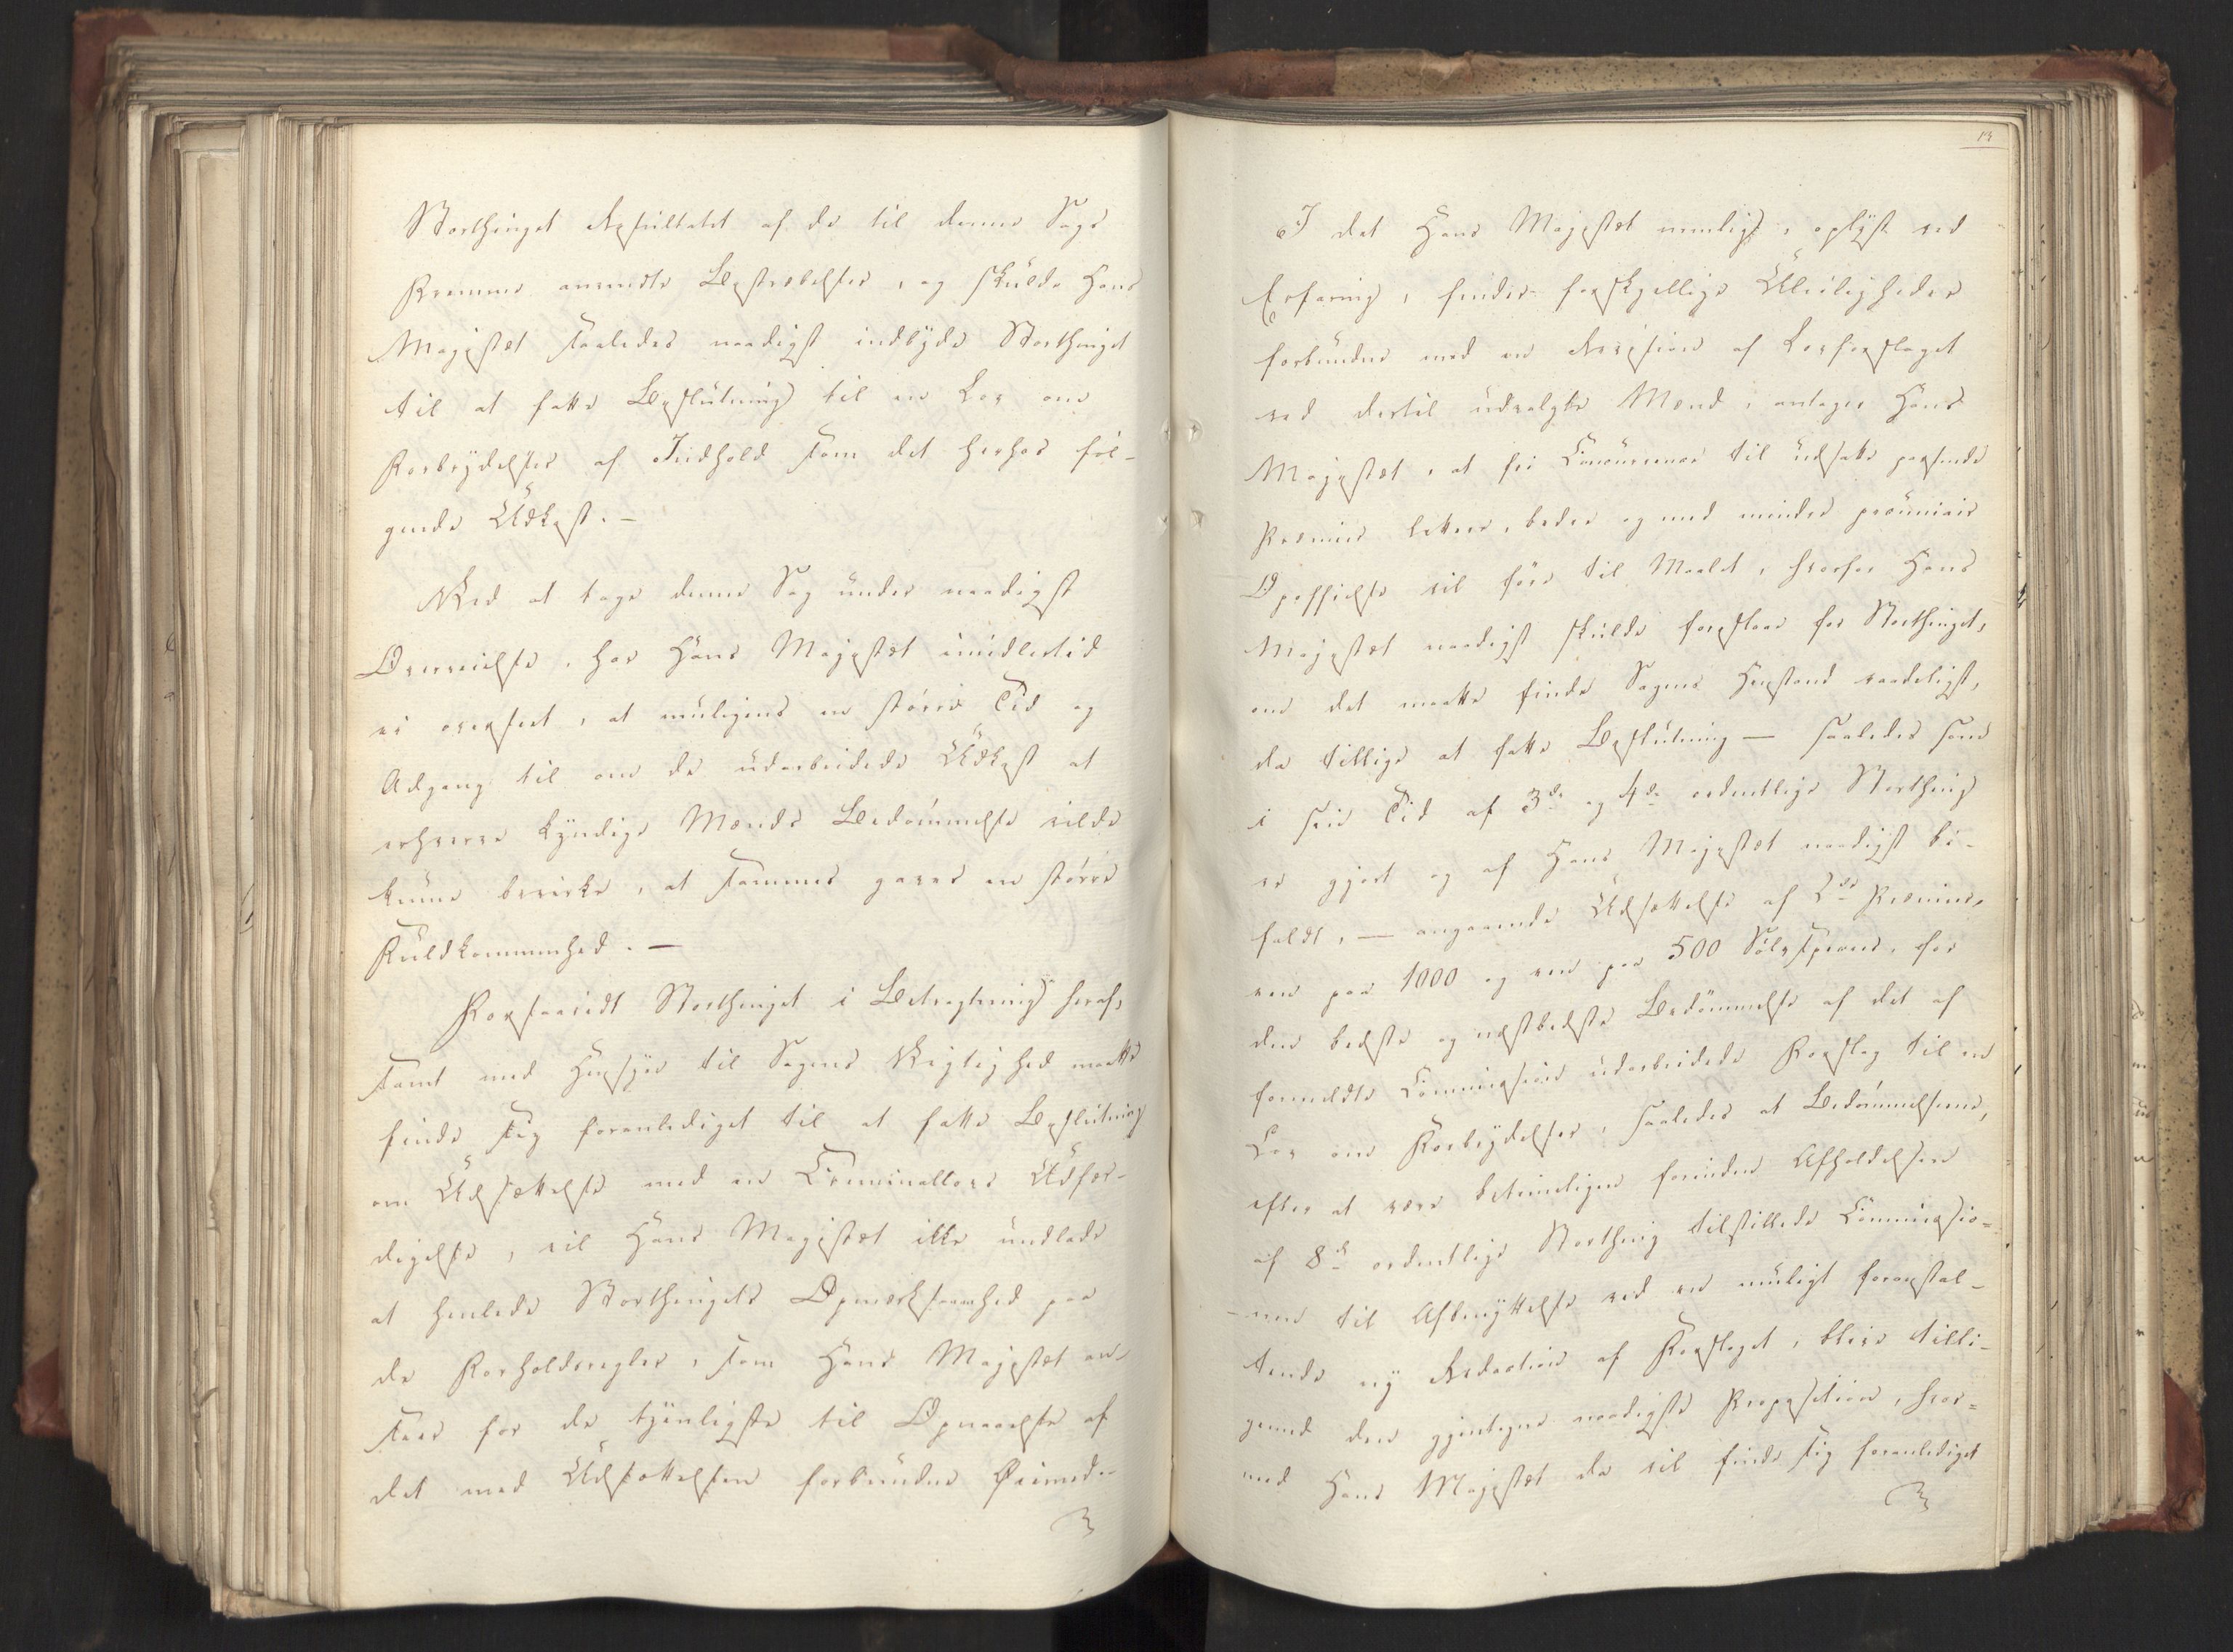 Storthinget Resultatet af de til denne Sags
Fremme anvendte Bestræbelser, og skulde Hans
Majestæt saaledes naadigst indbyde Storthinget
til at fatte Beslutning til en Lov om
Forbrydelser af Indhold som det herhos føl-
gende Udkast. —
Ved at tage denne Sag under naadigst
Overveielse, har Hans Majestæt imidlertid
ei overseet, at muligens en større Tid og
Adgang til om de udarbeidede Udkast at
erhverve kyndige Mænds Bedømmelse vilde
kunne bevirke, at sammes gaves en større
Fuldkommenhed. —
Forsaavidt Storthinget i Betragtning heraf,
samt med Hensyn til Sagens Vigtighed maatte
finde sig foranlediget til at fatte Beslutning
om Udsættelse med en Criminallovs Udfær-
digelse, vil Hans Majestæt ikke undlade
at henlede Storthingets Opmærksomhed paa
de Forholdsregler, som Hans Majestæt an-
saae for de tjenligste til Opnaaelse af
det med Udsættelsen forbundne Øiemed.
13
I det Hans Majestæt nemlig, oplyst ved
Erfaring, finder forskjellige Uleiligheder
forbundne med en Revision af Lovforslaget
ved dertil udvalgte Mænd, antager Hans
Majestæt, at fri Concurrence til udsatte passende
Præmier lettere, bedre og med mindre pecuniair
Opoffrelse vil føre til Maalet, hvorfor Hans
Majestæt naadigst skulde foreslaae for Storthinget,
om det maatte finde Sagens Henstand raadeligst,
da tillige at fatte Beslutning — saaledes som
i sin Tid af 3die og 4de ordentlige Storthing
er gjort og af Hans Majestæt naadigst bi-
faldt, — angaaende Udsættelse af 2de Præmier,
een paa 1000 og een paa 500 Sølvspecies, for
den bedste og næstbedste Bedømmelse af det af
formeldte Commission udarbeidede Forslag til en
Lov om Forbrydelser, saaledes at Bedømmelserne,
efter at være betimeligen forinden Afholdelsen
af 8de ordentlige Storthing tilstillede Commissio=
-nen til Afbenyttelse ved en muligt foranstal-
tende ny Redaction af Forslaget, blive tilli-
gemed den gjentagne naadigste Proposition, hvor=
med Hans Majestæt da vil finde sig foranlediget